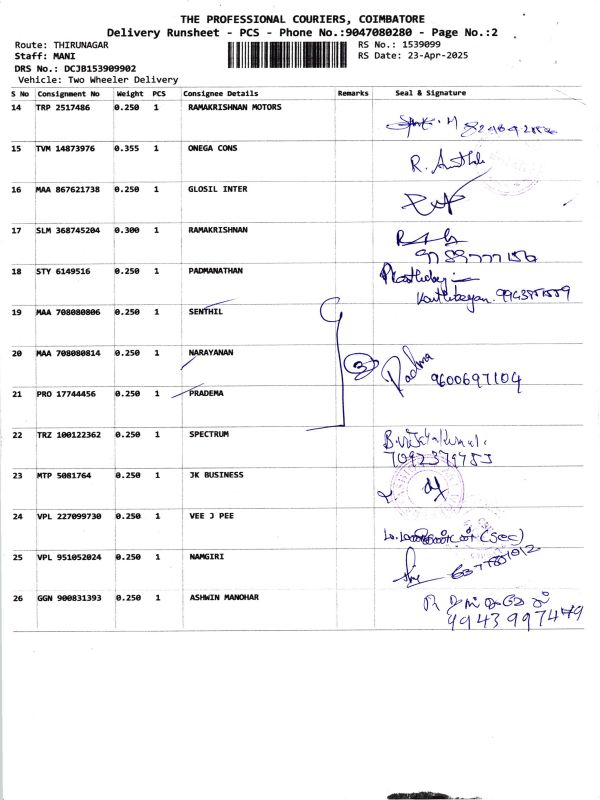 THE PROFESSIONAL COURIERS, COIMBATORE
Delivery Runsheet - PCS - Phone No.:9047080280 - Page No.:2
Route: THIRUNAGAR RS No.: 1539099
Staff: MANI RS Date: 23-Apr-2025
DRS No.: DCJB153909902
Vehicle: Two Wheeler Delivery
S No Consignment No Weight PCS Consignee Details Remarks Seal & Signature
14 TRP 2517486 0.250 1 RAMAKRISHNAN MOTORS
15 TVM 14873976 0.355 1 ONEGA CONS R.
16 MAA 867621738 0.250 1 GLOSIL INTER
17 SLM 368745204 0.300 1 RAMAKRISHNAN
18 STY 6149516 0.250 1 PADMANATHAN
19 MAA 708080806 0.250 1 SENTHIL
20 MAA 708080814 0.250 1 NARAYANAN 3 Padma 9600697104
21 PRO 17744456 0.250 1 PRADEMA
22 TRZ 100122362 0.250 1 SPECTRUM
7092379753
23 MTP 5081764 0.250 1 JK BUSINESS
24 VPL 227099730 0.250 1 VEE J PEE (Sec)
25 VPL 951052024 0.250 1 NAMGIRI
26 GGN 900831393 0.250 1 ASHWIN MANOHAR
9943997479